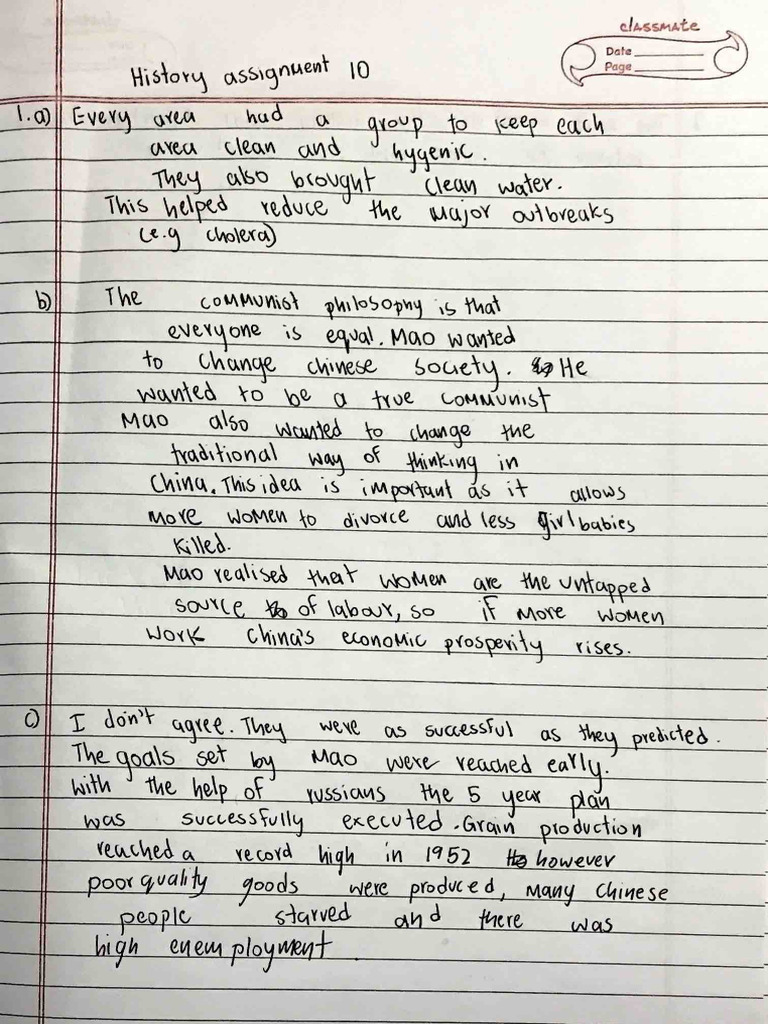 classmate
Date
Page
History assignment 10
1.a) Every area had a group to keep each
area clean and hygenic.
They also brought clean water.
This helped reduce the major outbreaks
(e.g cholera)
b) The communist philosophy is that
everyone is equal. Mao wanted
to change chinese society. He
wanted to be a true communist
Mao also wanted to change the
traditional way of thinking in
China. This idea is important as it allows
more women to divorce and less girl babies
killed.
Mao realised that women are the untapped
source of labour, so if more women
work China's economic prosperity rises.
c) I don't agree. They were as successful as they predicted.
The goals set by Mao were reached early.
With the help of russians the 5 year plan
was successfully executed. Grain production
reached a record high in 1952 however
poor quality goods were produced, many Chinese
people starved and there was
high enemployment